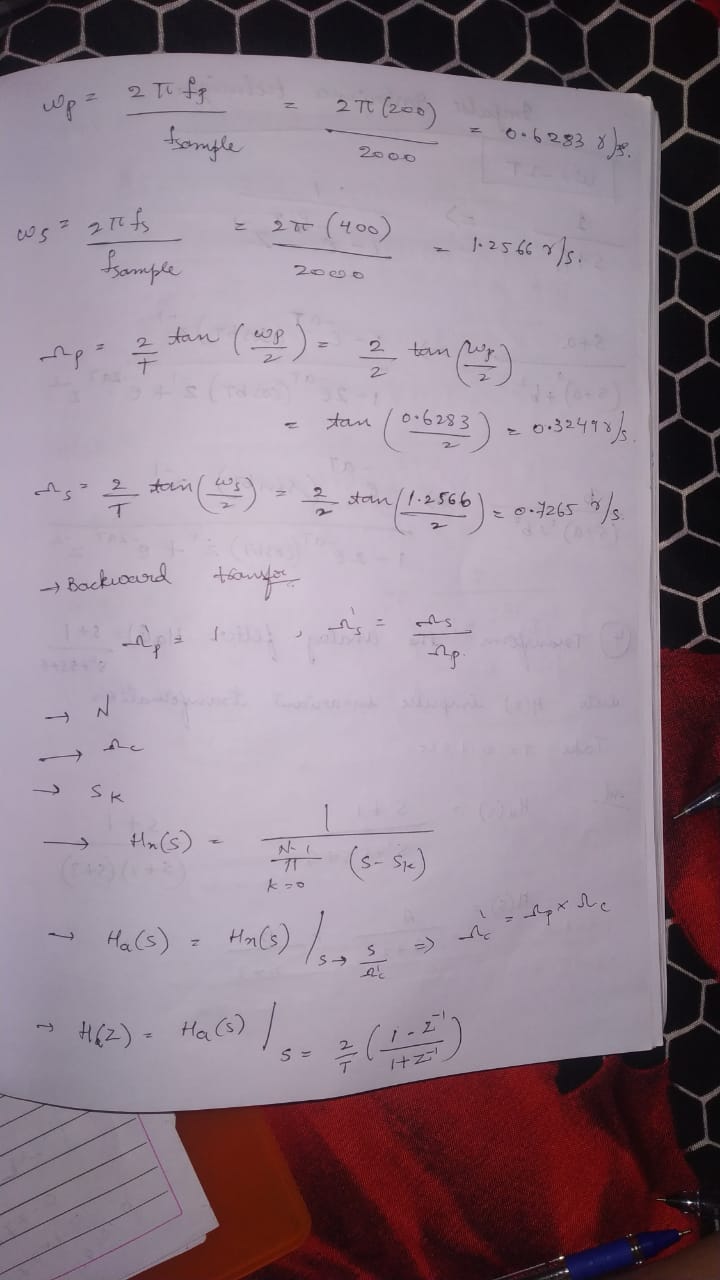 ωp = 2πfp / fsample = 2π(200) / 2000 = 0.6283 r/s.
ωs = 2πfs / fsample = 2π(400) / 2000 = 1.2566 r/s.
Ωp = 2/T tan(ωp/2) = 2/2 tan(ωp/2)
= tan(0.6283/2) = 0.3249 r/s.
Ωs = 2/T tan(ωs/2) = 2/2 tan(1.2566/2) = 0.7265 r/s
→ Backward transfor
Ω'p = 1 , Ω's = Ωs / Ωp.
→ N
→ Ωc
→ SK
→ Hn(s) = 1 / N-1 π k=0 (s - Sk)
→ Ha(s) = Hn(s) / s→ s/Ω'c ⇒ Ω'c = Ωp × Ωc
→ H(z) = Ha(s) / s = 2/T (1-z⁻¹ / 1+z⁻¹)